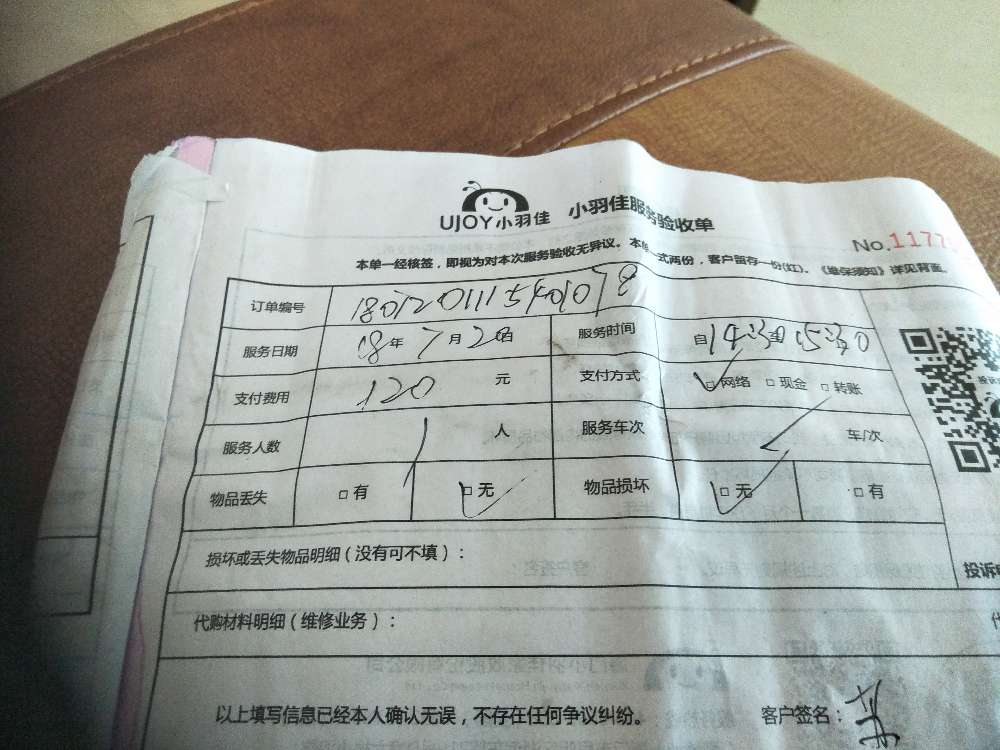 UJOY小羽佳 小羽佳服务验收单
No.1177
本单一经核签，即视为对本次服务验收无异议。本单 式两份，客户留存一份(红)。《维保须知》详见背面。
订单编号
服务日期 18年7月2 日 服务时间 自14:30至15:30
支付费用 120 元 支付方式 □网络 □现金 □转账
服务人数 1 人 服务车次 车/次
物品丢失 □有 □无 物品损坏 □无 □有
损坏或丢失物品明细（没有可不填）：
投诉
代购材料明细（维修业务）：
以上填写信息已经本人确认无误，不存在任何争议纠纷。 客户签名：